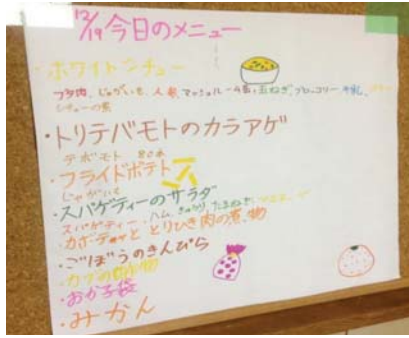 12/19 今日のメニュー
・ホワイトシチュー
ブタ肉、じゃがいも、人参、マッシュルーム、玉ねぎ、ブロッコリー、牛乳、
シチューの素
・トリテバモトのカラアゲ
テバモト
・フライドポテト
じゃがいも
・スパゲティーのサラダ
スパゲティー、ハム、きゅうり、たまねぎ、マヨネーズ
・カボチャととりひき肉の煮物
・ごぼうのきんぴら
・カブの酢の物
・おかし袋
・みかん